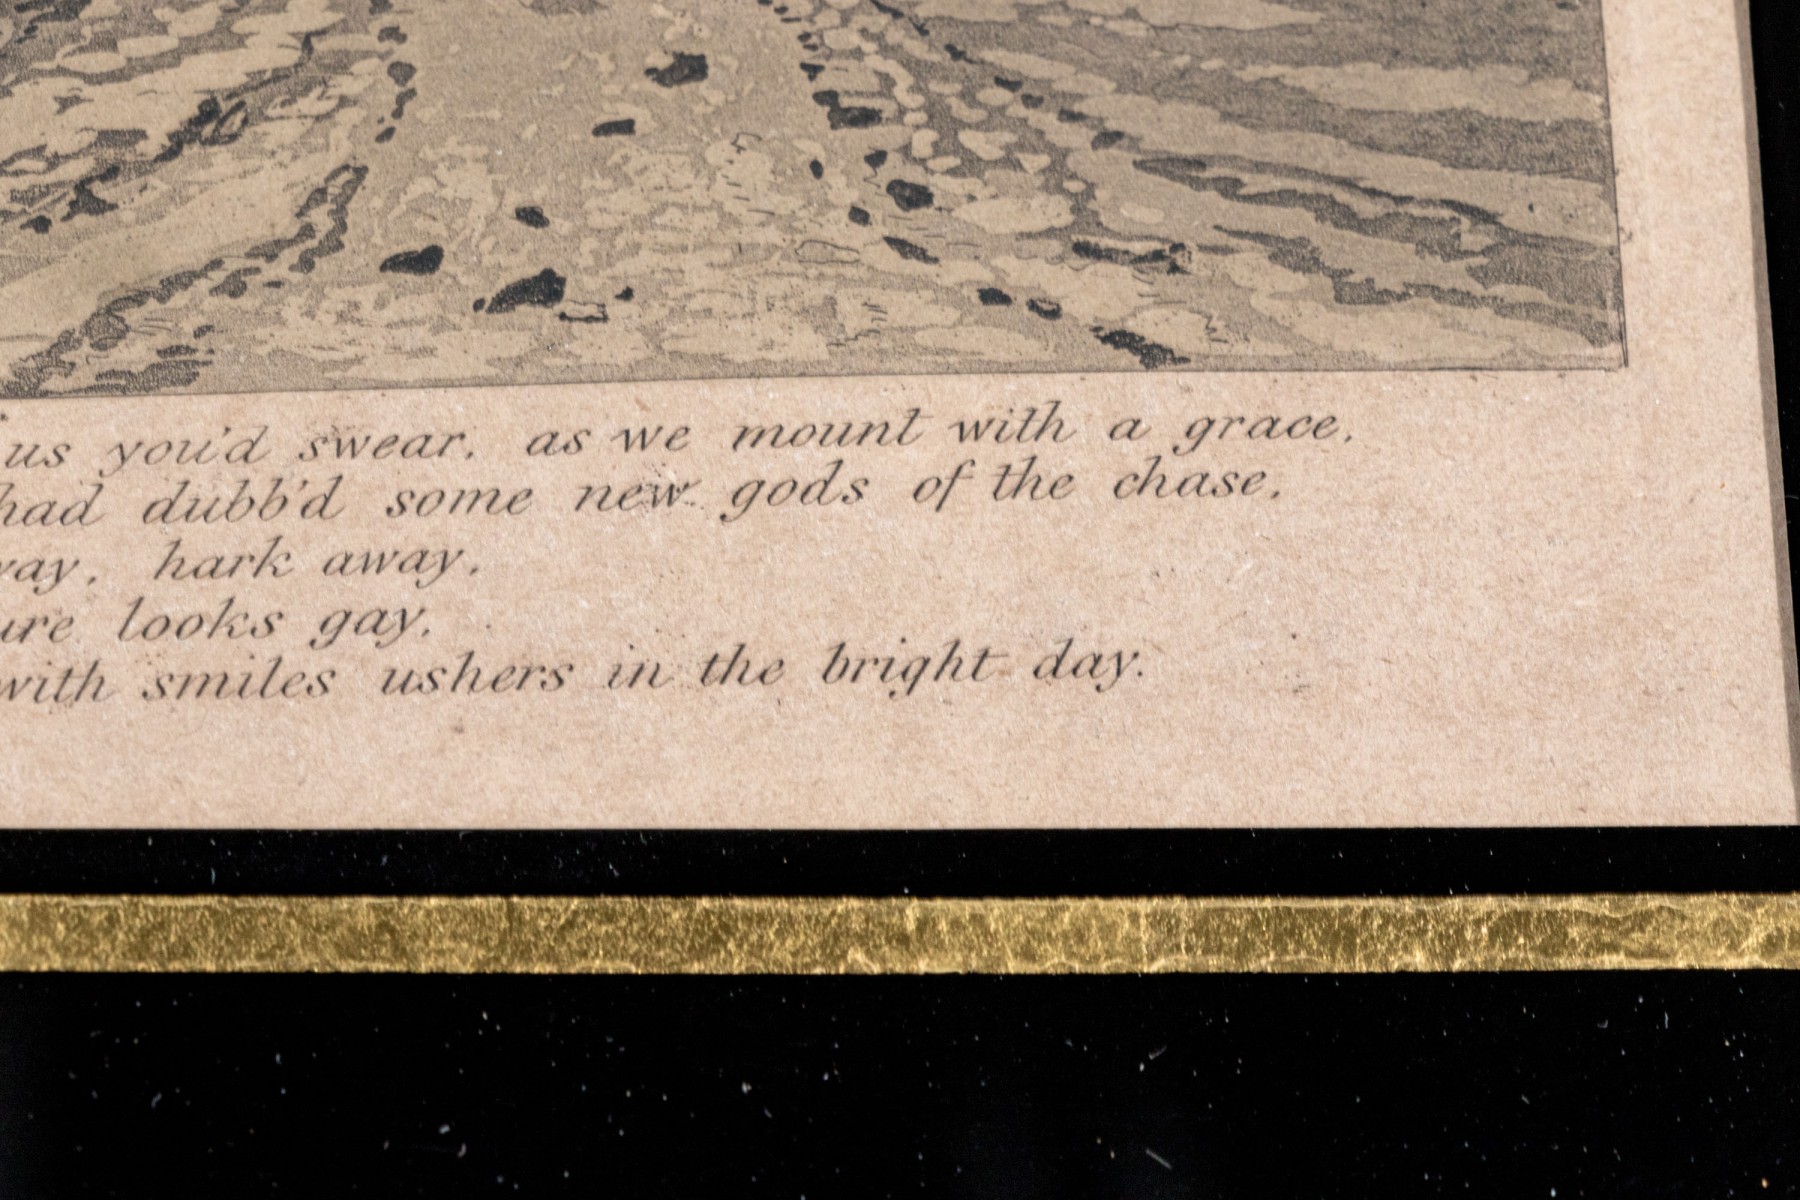 us you'd swear, as we mount with a grace,
had dubb'd some new gods of the chase,
way, hark away,
ure looks gay,
with smiles ushers in the bright day.